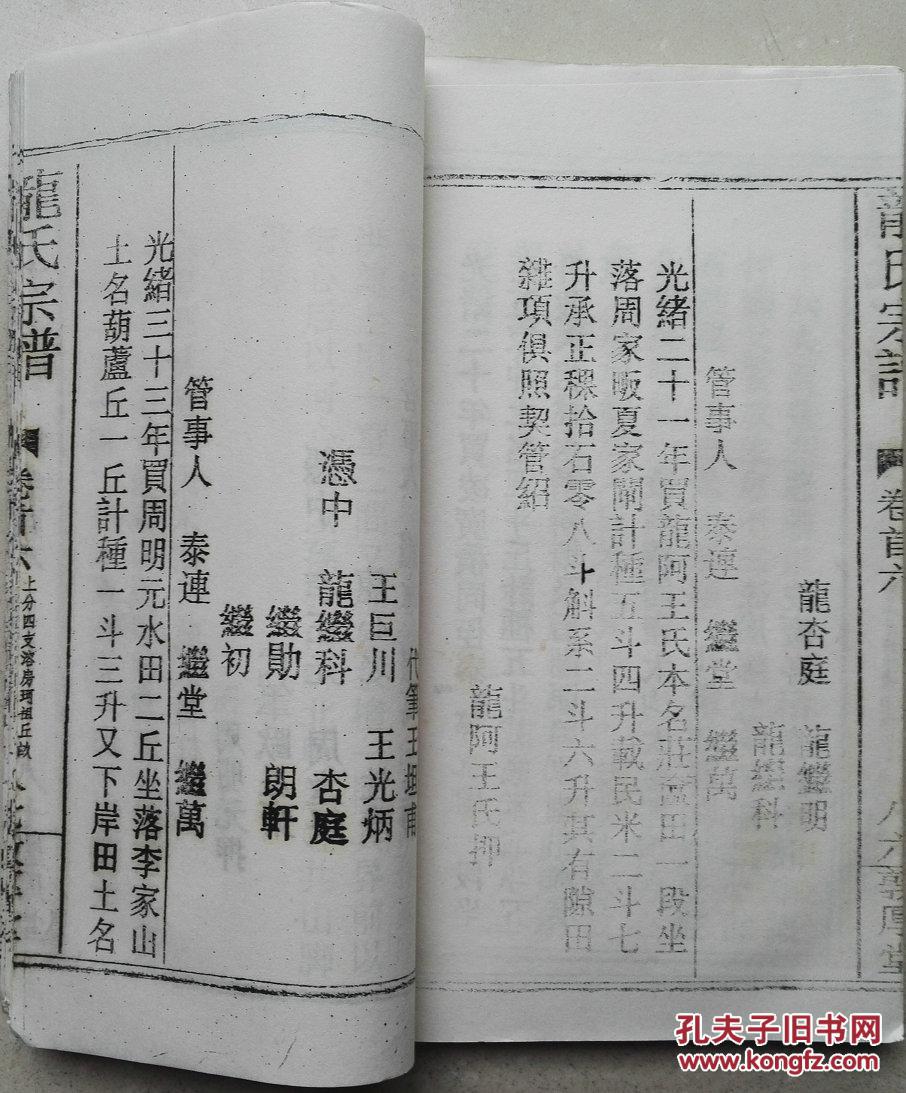 龍氏宗譜
卷首六
八六
敦厚堂
龍杏庭 龍繼明
龍繼科
管事人 泰連 繼堂 繼萬
光緒二十一年買龍阿王氏本名莊壹田一段坐
落周家畈夏家閙計種五斗四升載民米二斗七
升承正稞拾石零八斗斛系二斗六升其有隙田
雜項俱照契管紹
龍阿王氏押
代筆王
王巨川 王光炳
憑中 龍繼科 杏庭
繼勛 朗軒
繼初
管事人 泰連 繼堂 繼萬
光緒三十三年買周明元水田二丘坐落李家山
土名葫蘆丘一丘計種一斗三升又下岸田土名
龍氏宗譜
卷首六
上分四支洛房珂祖丘畝
孔夫子旧书网
www.kongfz.com